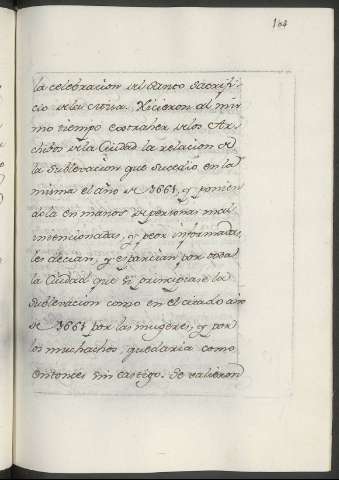 104
la celebracion del Santo Sacrifi-
cio de la Missa. Hicieron al mis-
mo tiempo extraher de los Ar-
chivos de la Ciudad la relacion de
la Sublevacion que sucedio en la
misma el año de 1661, y ponien
dola en manos de personas mal
intencionadas, y peor informadas,
les decian, y esparcian por toda
la Ciudad que si principiase la
sublevacion como en el citado año
de 1661 por las mugeres, y por
los muchachos, quedaria como
entonces sin castigo. Se valieron